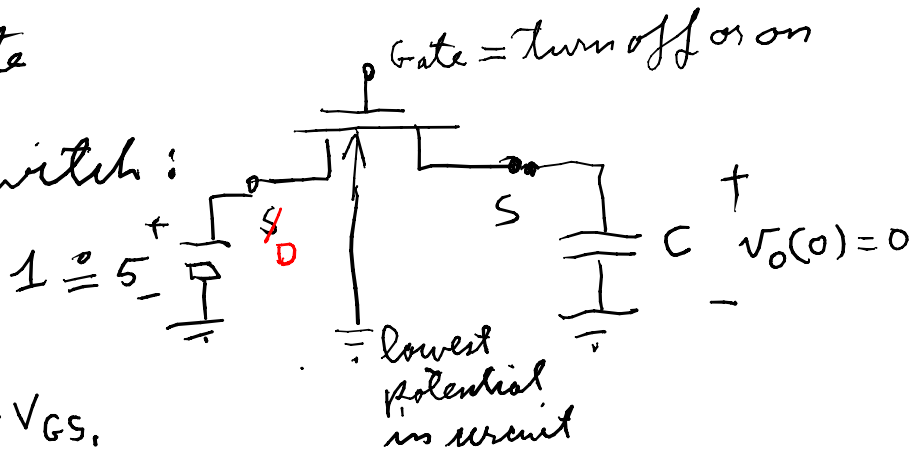 te
Gate = turn off or on
witch :
S
D
S
+
1 ≅ 5
-
C
+
v₀(0) = 0
-
lowest
potential
in circuit
V_GS.